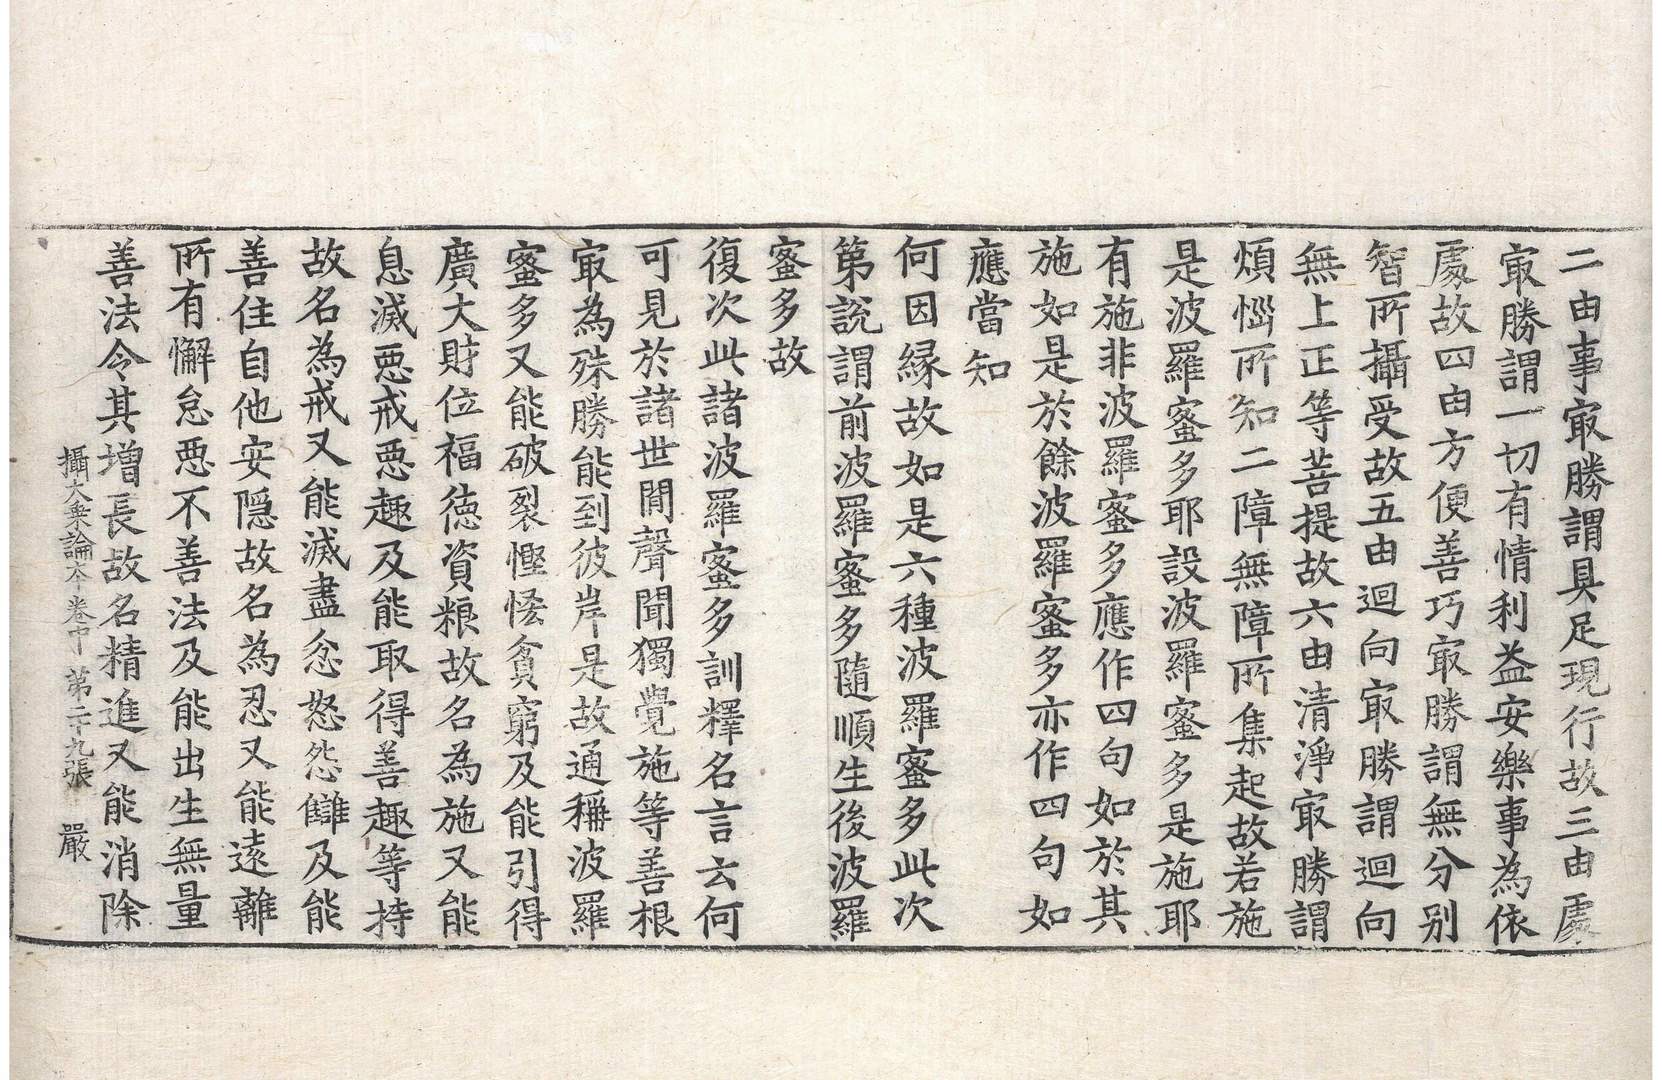 二由事㝡勝謂具足現行故三由處
㝡勝謂一切有情利益安樂事為依
處故四由方便善巧㝡勝謂無分別
智所攝受故五由迴向㝡勝謂迴向
無上正等菩提故六由清淨㝡勝謂
煩惱所知二障無障所集起故若施
是波羅蜜多耶設波羅蜜多是施耶
有施非波羅蜜多應作四句如於其
施如是於餘波羅蜜多亦作四句如
應當知
何因緣故如是六種波羅蜜多此次
第說謂前波羅蜜多隨順生後波羅
蜜多故
復次此諸波羅蜜多訓釋名言云何
可見於諸世間聲聞獨覺施等善根
㝡為殊勝能到彼岸是故通稱波羅
蜜多又能破裂慳悋貧窮及能引得
廣大財位福德資粮故名為施又能
息滅惡戒惡趣及能取得善趣等持
故名為戒又能滅盡忿怒怨讎及能
善住自他安隱故名為忍又能遠離
所有懈怠惡不善法及能出生無量
善法令其增長故名精進又能消除
攝大乗論本卷中 第二十九張 嚴